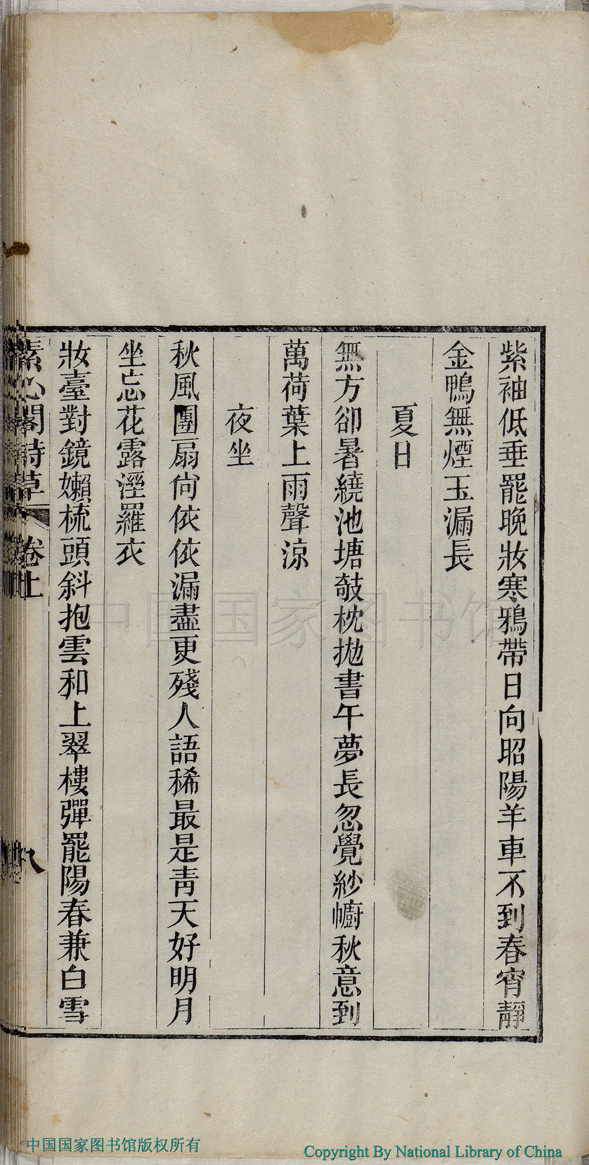 紫袖低垂罷晚妝寒鴉帶日向昭陽羊車不到春宵靜
金鴨無煙玉漏長
夏日
無方卻暑繞池塘攲枕拋書午夢長忽覺紗幮秋意到
萬荷葉上雨聲涼
夜坐
秋風團扇尙依依漏盡更殘人語稀最是靑天好明月
坐忘花露溼羅衣
妝臺對鏡嬾梳頭斜抱雲和上翠樓彈罷陽春兼白雪
素心閣詩草 卷上 八
中国国家图书馆
中国国家图书馆版权所有
Copyright By National Library of China